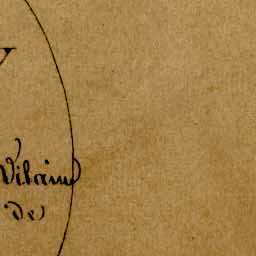 Vilain
de